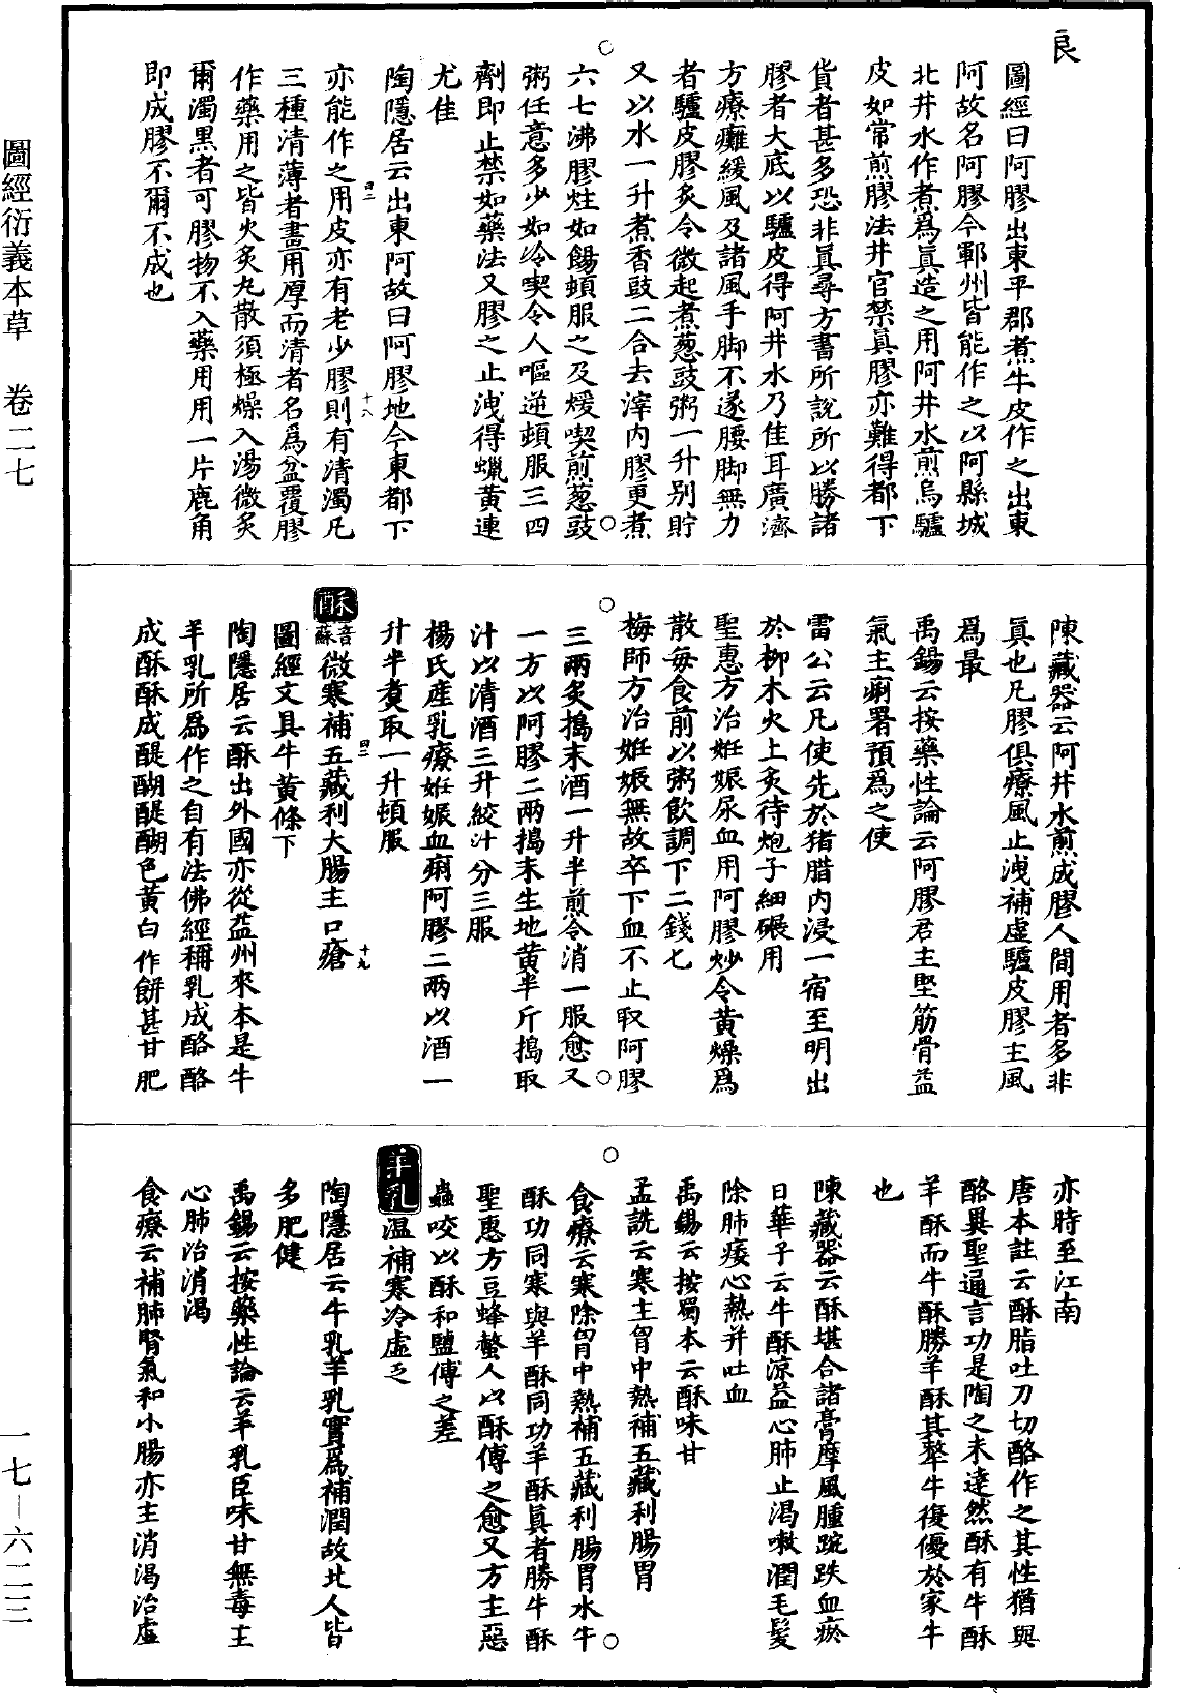 良
圖經曰阿膠出東平郡煮牛皮作之出東
阿故名阿膠今鄆州皆能作之以阿縣城
北井水作煮爲眞造之用阿井水煎烏驢
皮如常煎膠法井官禁眞膠亦難得都下
貨者甚多恐非眞尋方書所說所以勝諸
膠者大底以驢皮得阿井水乃佳耳廣濟
方療癱緩風及諸風手脚不遂腰脚無力
者驢皮膠炙令微起煮葱豉粥一升别貯
又以水一升煮香豉二合去滓内膠更煮
六七沸膠烊如餳頓服之及煖喫煎葱豉
粥任意多少如冷喫令人嘔逆頓服三四
劑即止禁如藥法又膠之止洩得蠟黄連
尤佳
陶隱居云出東阿故曰阿膠地今東都下
亦能作之用皮亦有老少膠則有清濁凡
四二
十八
三種清薄者畫用厚而清者名爲盆覆膠
作藥用之皆火炙丸散須極燥入湯微炙
爾濁黑者可膠物不入藥用用一片鹿角
即成膠不爾不成也
陳藏器云阿井水煎成膠人間用者多非
眞也凡膠俱療風止洩補虛驢皮膠主風
爲最
禹錫云按藥性論云阿膠君主堅筋骨益
氣主痢署預爲之使
雷公云凡使先於猪腊内浸一宿至明出
於柳木火上炙待炮子細碾用
聖惠方治姙娠尿血用阿膠炒令黄燥爲
散每食前以粥飲調下二錢七
梅師方治姙娠無故卒下血不止取阿膠
三兩炙搗末酒一升半煎令消一服愈又
一方以阿膠二兩搗末生地黄半斤搗取
汁以清酒三升絞汁分三服
楊氏産乳療姙娠血痢阿膠二兩以酒一
升半煑取一升頓服
酥音蘇微寒補五藏利大腸主口瘡
四二
十九
圖經文具牛黄條下
陶隱居云酥出外國亦從益州來本是牛
羊乳所爲作之自有法佛經稱乳成酪酪
成酥酥成醍醐醍醐色黄白作餅甚甘肥
亦時至江南
唐本註云酥脂吐刀切酪作之其性猶與
酪異聖通言功是陶之未達然酥有牛酥
羊酥而牛酥勝羊酥其犛牛復優於家牛
也
陳藏器云酥堪合諸膏摩風腫踠跌血瘀
日華子云牛酥涼益心肺止渴嗽潤毛髮
除肺痿心熱并吐血
禹錫云按蜀本云酥味甘
孟詵云寒主胷中熱補五藏利腸胃
食療云寒除胷中熱補五藏利腸胃水牛
酥功同寒與羊酥同功羊酥眞者勝牛酥
聖惠方豆蜂螫人以酥傅之愈又方主惡
蟲咬以酥和鹽傅之差
羊乳温補寒冷虛乏
陶隱居云牛乳羊乳實爲補潤故北人皆
多肥健
禹錫云按藥性論云羊乳臣味甘無毒主
心肺治消渴
食療云補肺腎氣和小腸亦主消渴治虛
圖經衍義本草 卷二七
一七-六二三